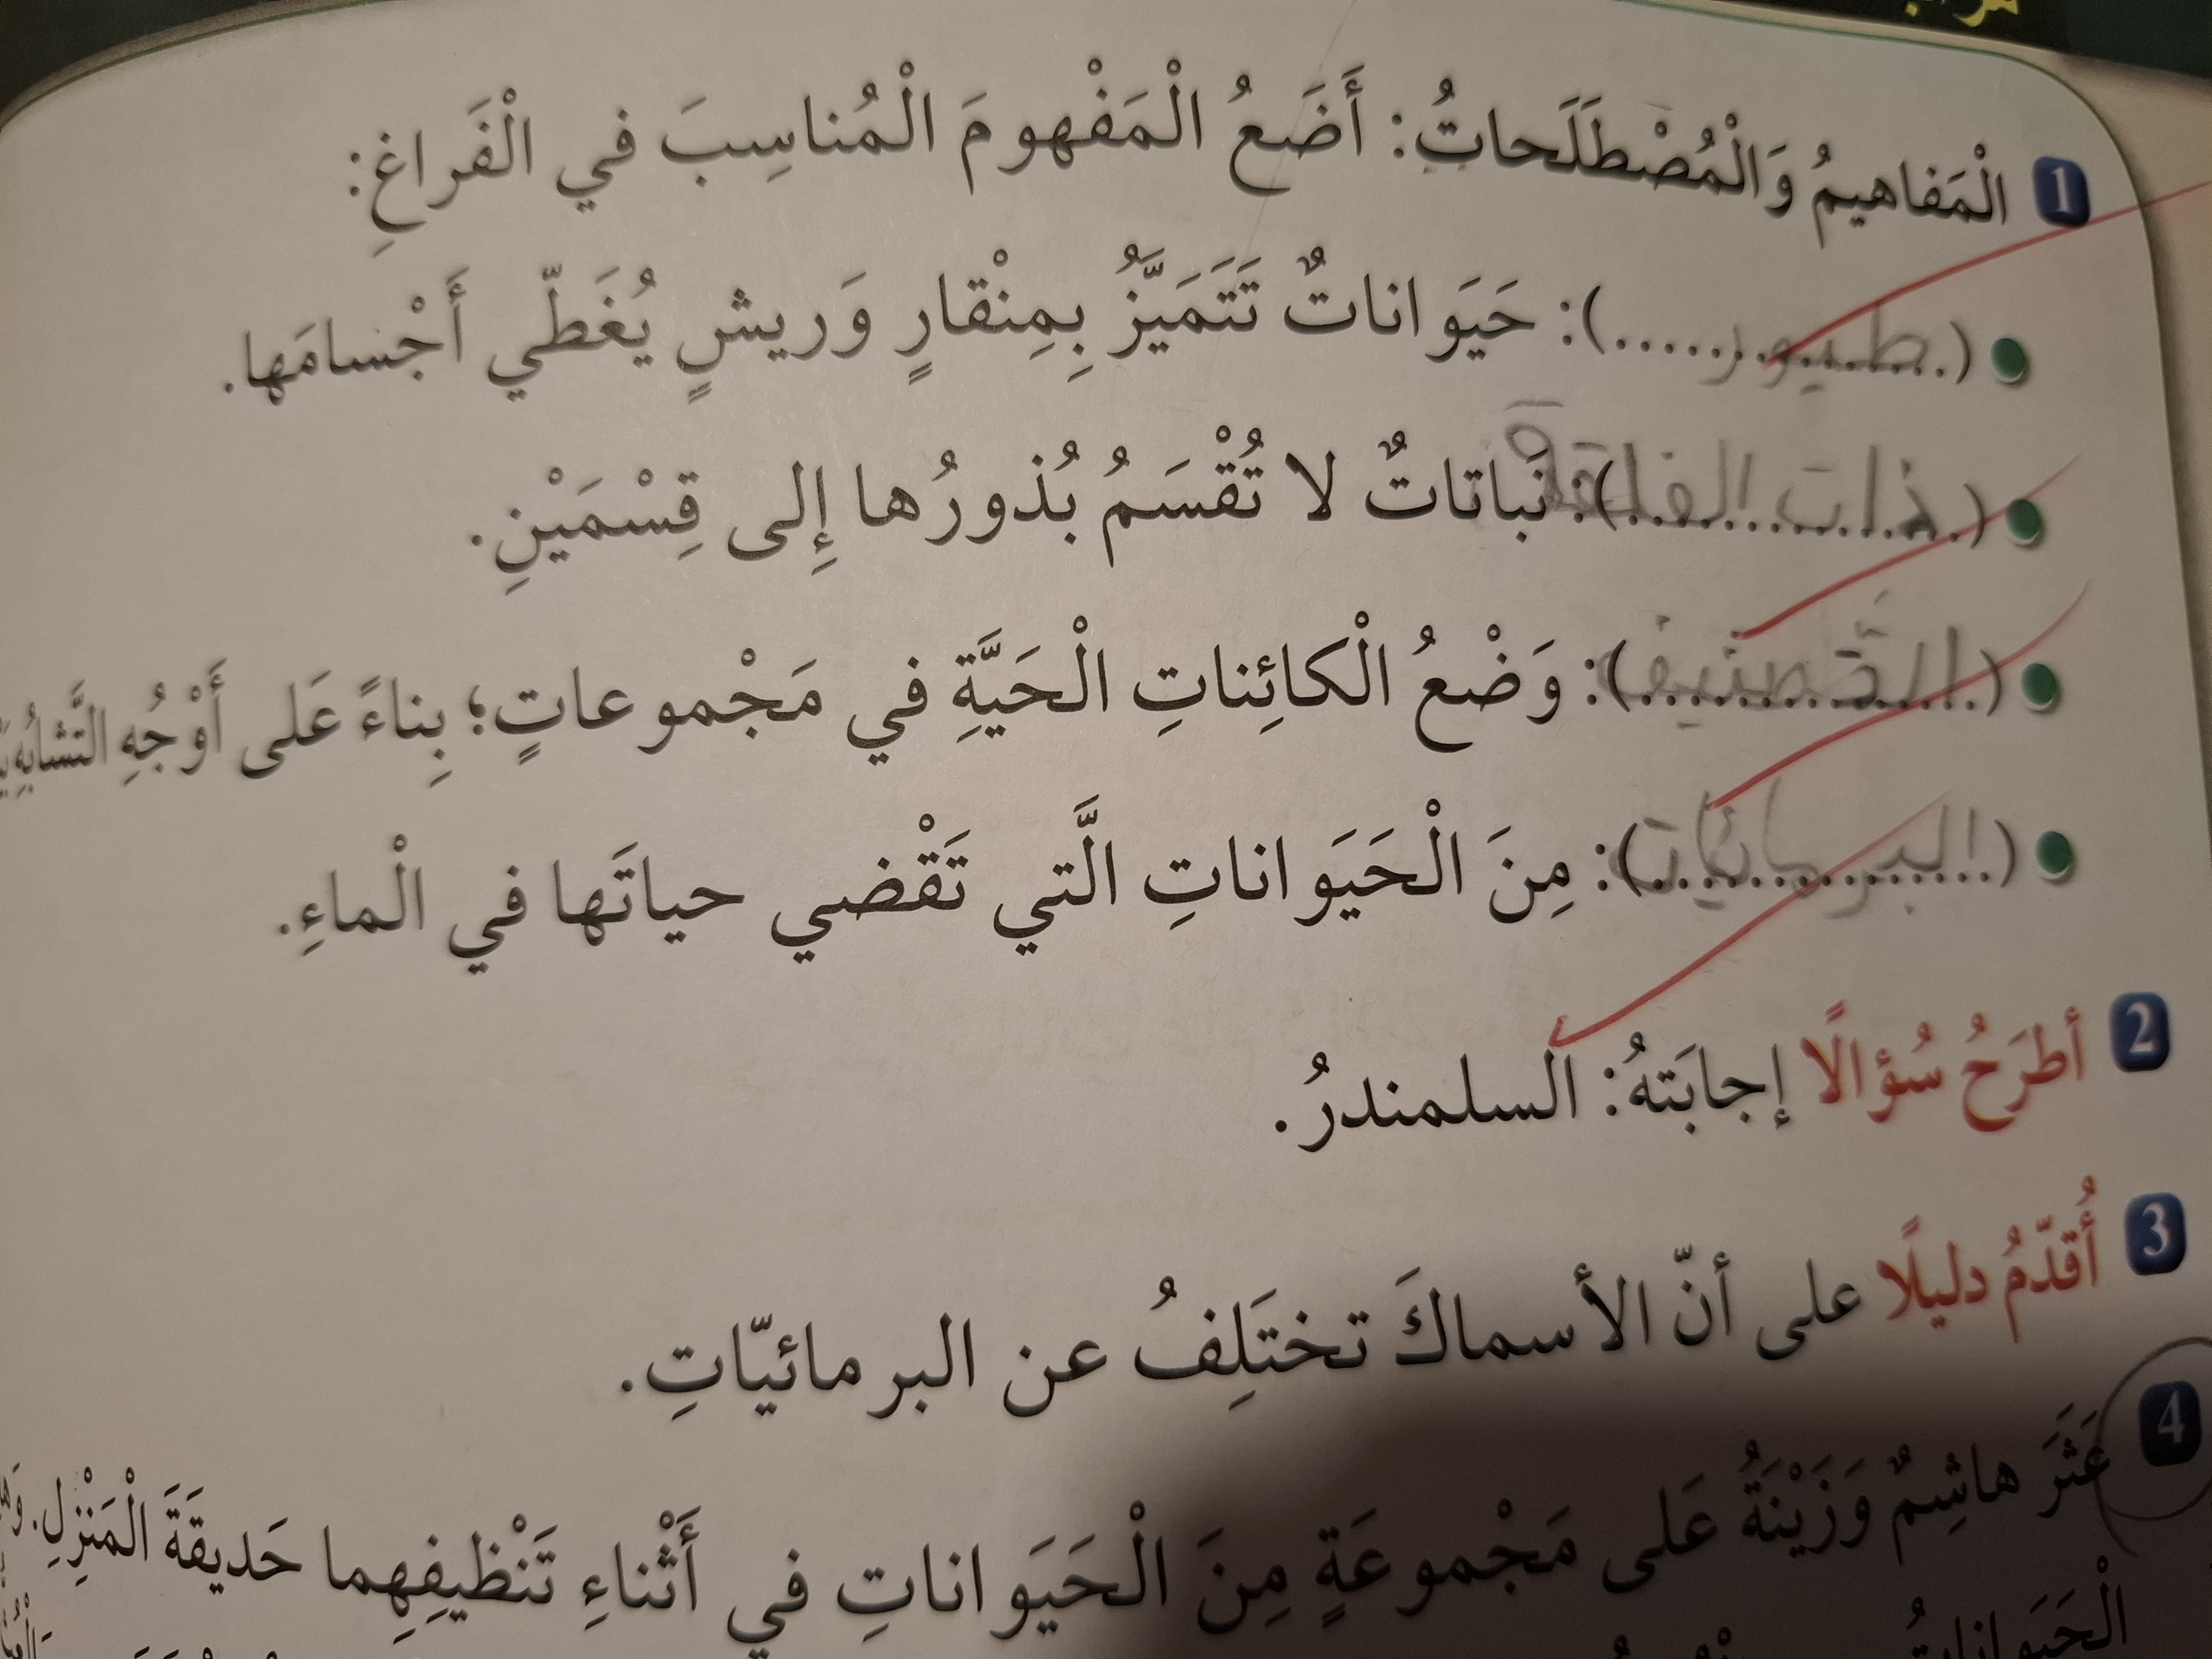 1 الْمَفاهيمُ وَالْمُصْطَلَحاتُ: أَضَعُ الْمَفْهومَ الْمُناسِبَ في الْفَراغِ:
(طيور): حَيَواناتٌ تَتَمَيَّزُ بِمِنْقارٍ وَريشٍ يُغَطّي أَجْسامَها.
(ذات الفلقة): نَباتاتٌ لا تُقْسَمُ بُذورُها إِلى قِسْمَيْنِ.
(التَّصنيف): وَضْعُ الْكائِناتِ الْحَيَّةِ في مَجْموعاتٍ؛ بِناءً عَلى أَوْجُهِ التَّشابُهِ
(البرمائيات): مِنَ الْحَيَواناتِ الَّتي تَقْضي حياتَها في الْماءِ.
2 أطرَحُ سُؤالًا إجابَتهُ: السلمندرُ.
3 أُقدّمُ دليلًا على أنّ الأسماكَ تختَلِفُ عن البرمائيّاتِ.
4 عَثَرَ هاشِمٌ وَزَيْنَةُ عَلى مَجْموعَةٍ مِنَ الْحَيَواناتِ في أَثْناءِ تَنْظيفِهِما حَديقَةَ الْمَنْزِلِ.
الْحَيَواناتُ